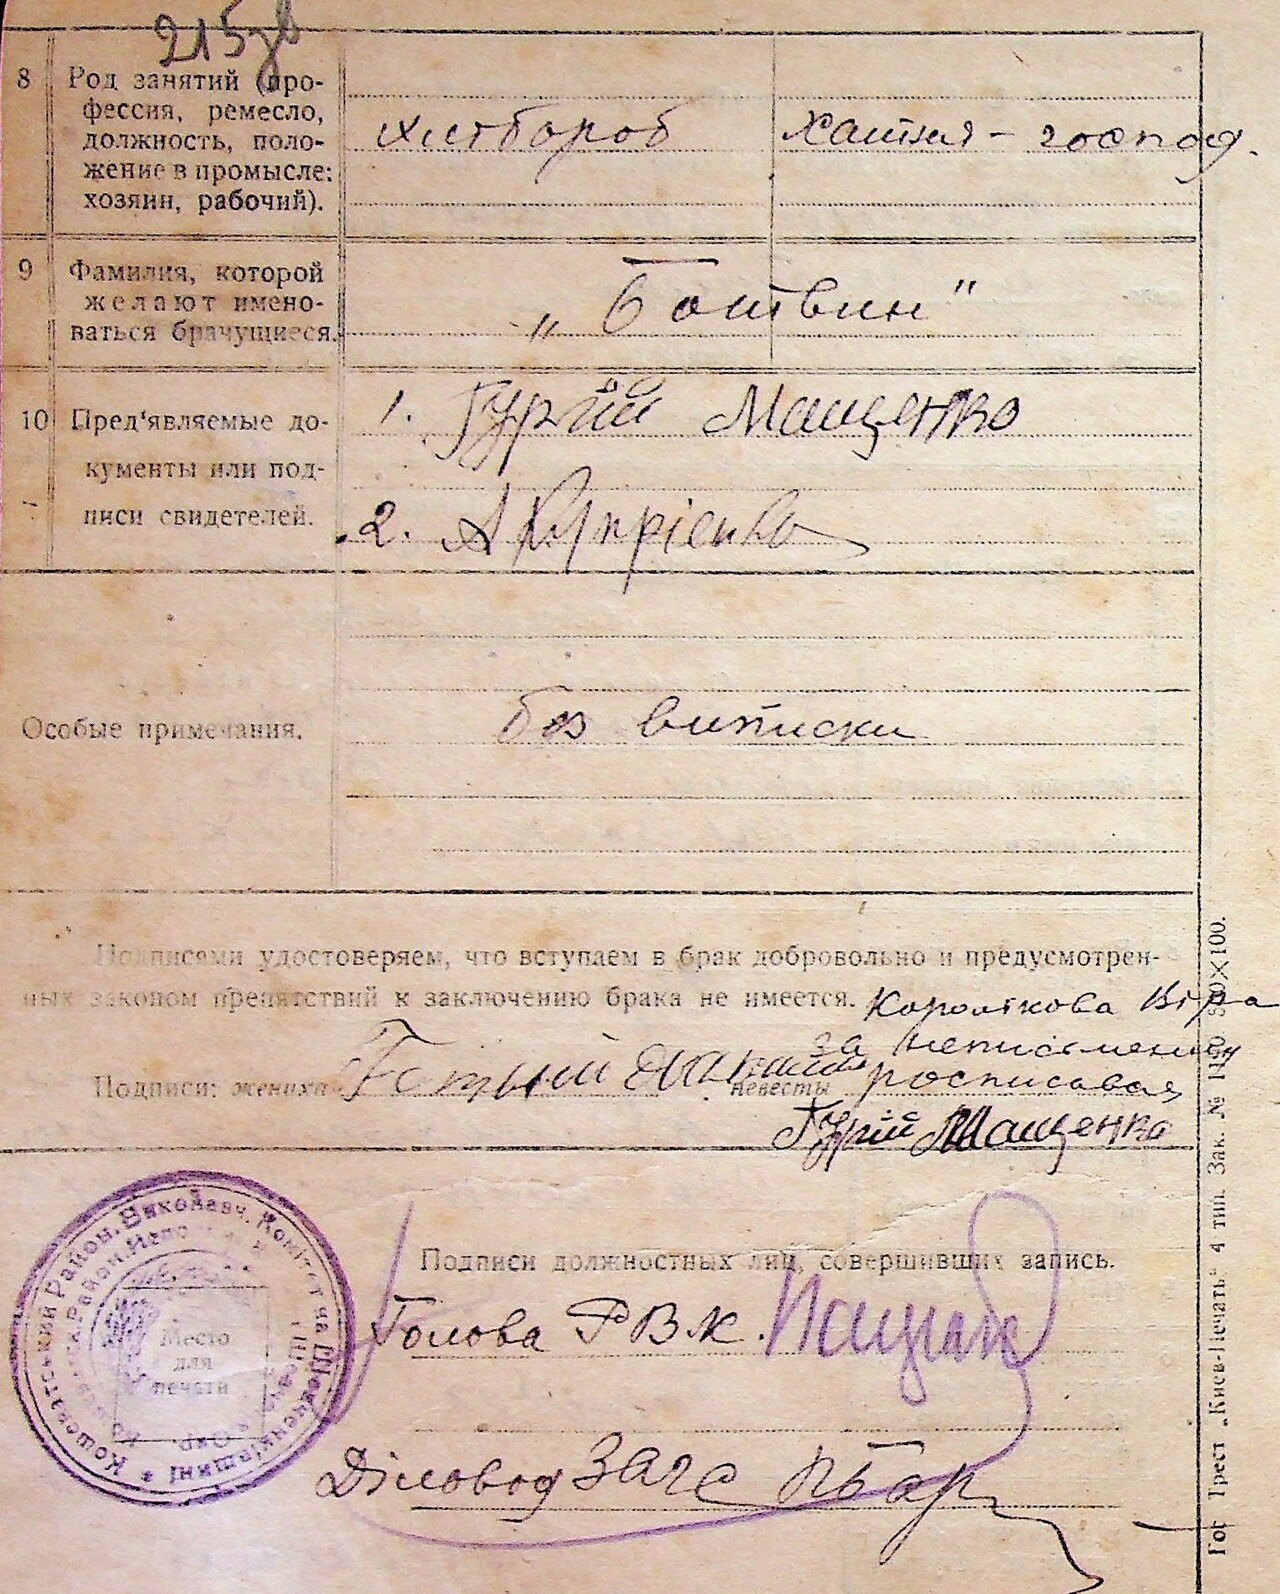 215зв
8 Род занятий (про-
фессия, ремесло,
должность, поло-
жение в промысле:
хозяин, рабочий).
хлібороб
хатня - господ.
9 Фамилия, которой
желают имено-
ваться брачущиеся.
„Ботвин"
10 Пред'являемые до-
кументы или под-
писи свидетелей.
1. Гурій Мащенко
2. А Купрієнко
Особые примечания.
без виписки
Подписями удостоверяем, что вступаем в брак добровольно и предусмотрен-
ных законом препятствий к заключению брака не имеется.
Короткова Віра
за неписьмену
Подписи: жениха
невесты
росписавсь
Гурій Мащенко
Подписи должностных лиц, совершивших запись.
Голова РВК.
Діловод ЗАГС
Кошеватський Район. Виконавч. Комітет на Шевченківщині
Место
для
печати
Гос Трест „Киев-Печать" 4 тип. Зак. №